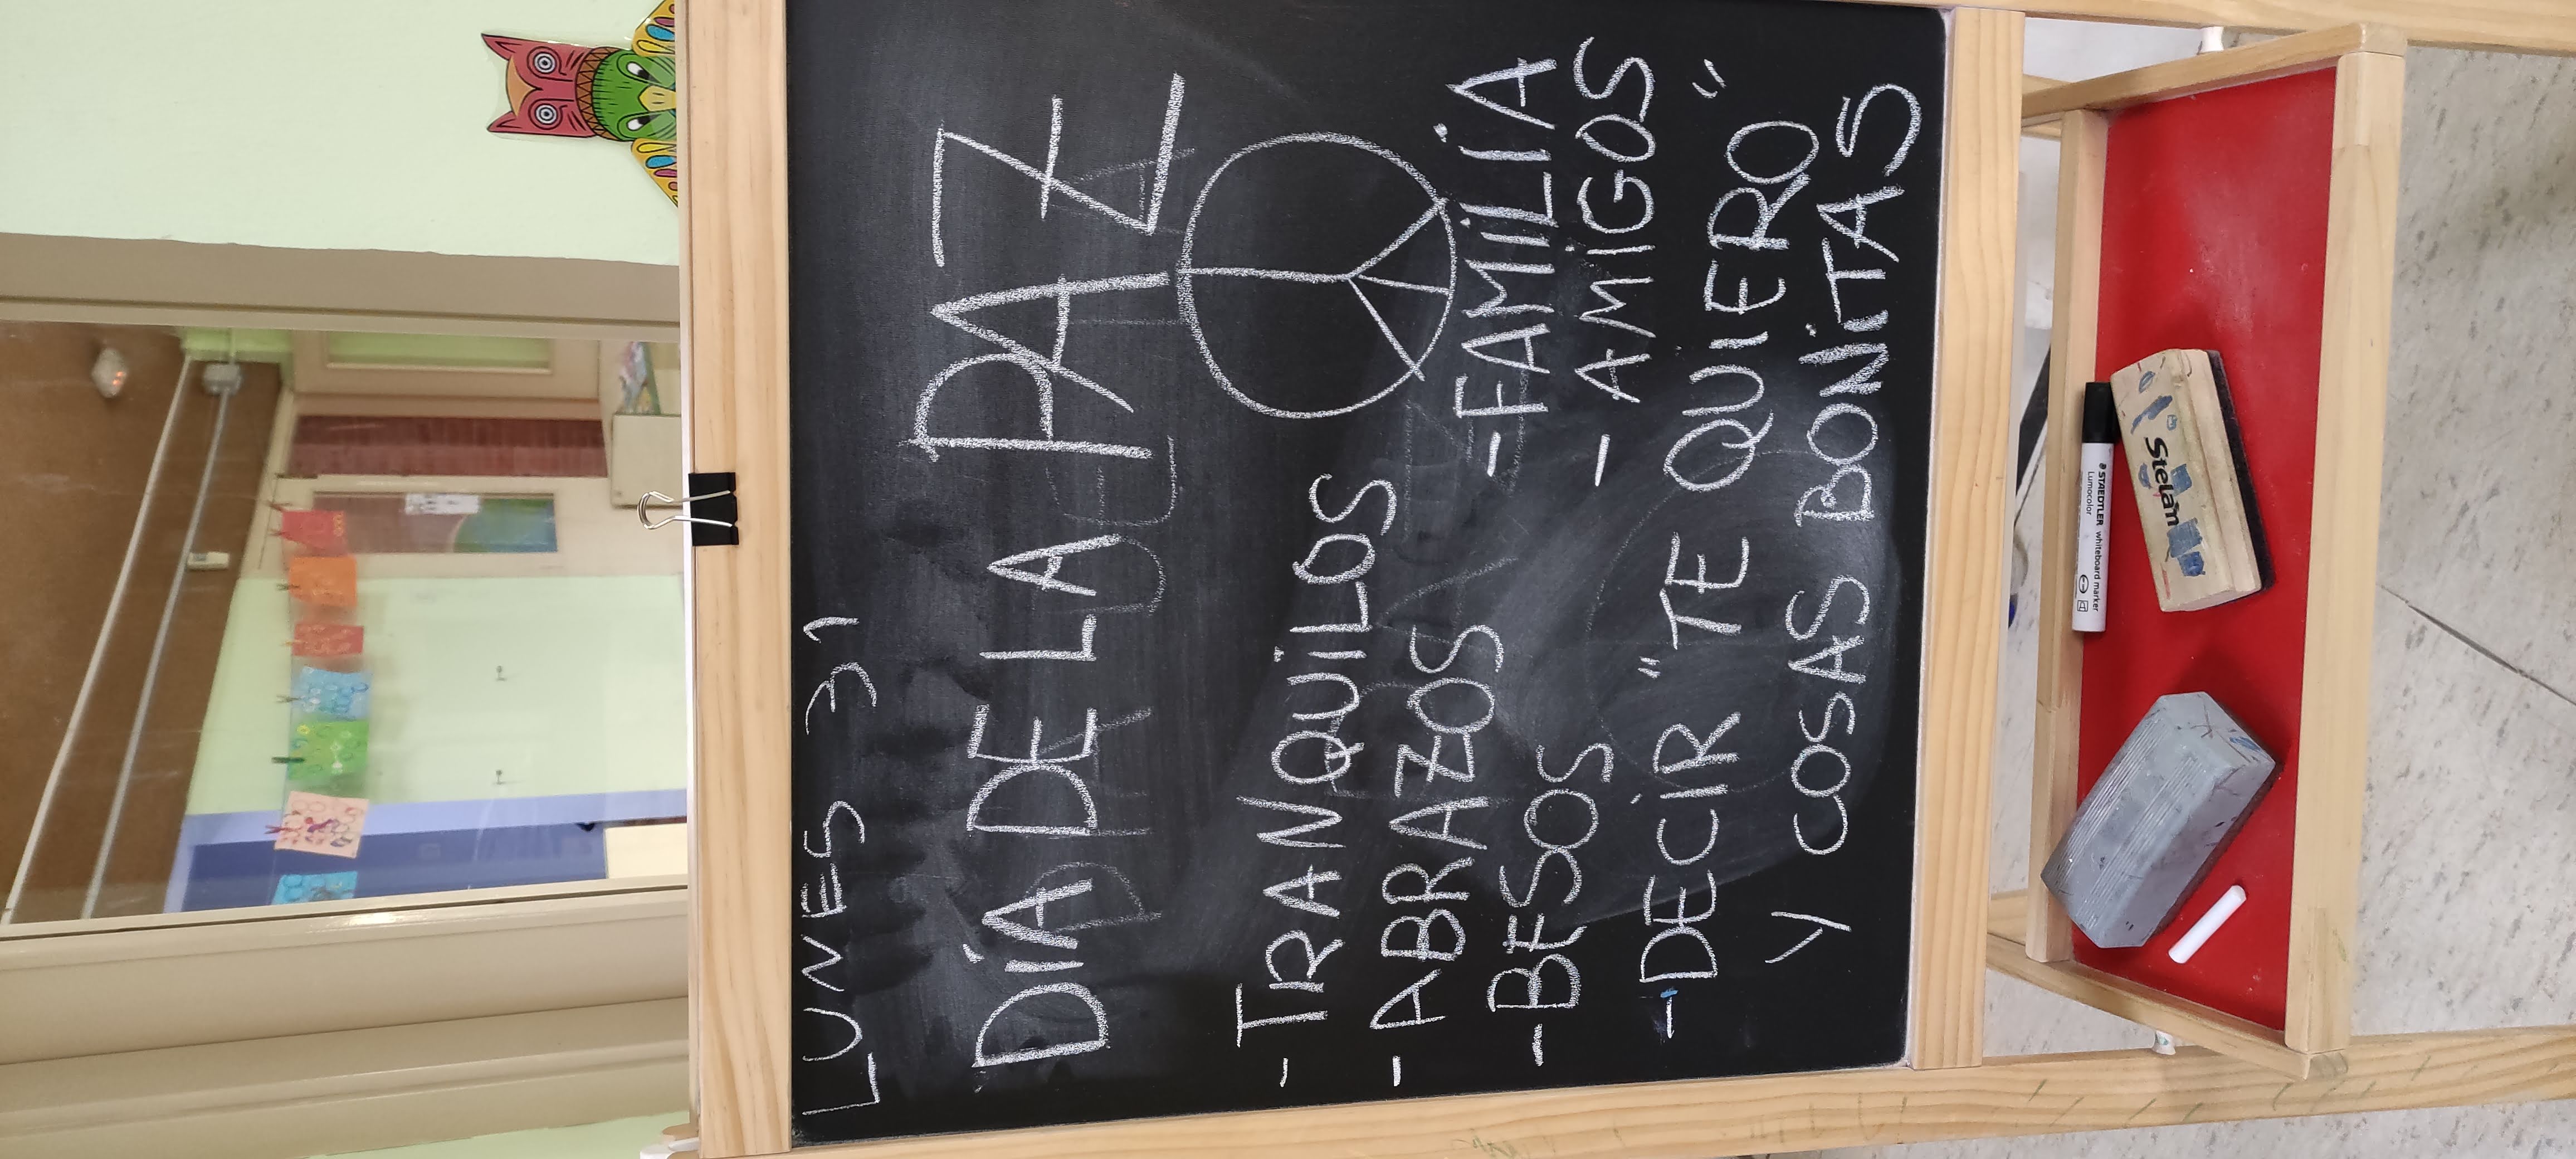 LUNES 31
DÍA DE LA PAZ
- TRANQUILOS
- ABRAZOS
- BESOS
- FAMILIA
- AMIGOS
- DECIR "TE QUIERO"
Y COSAS BONITAS
STAEDTLER
Lumocolor whiteboard marker
Stelan